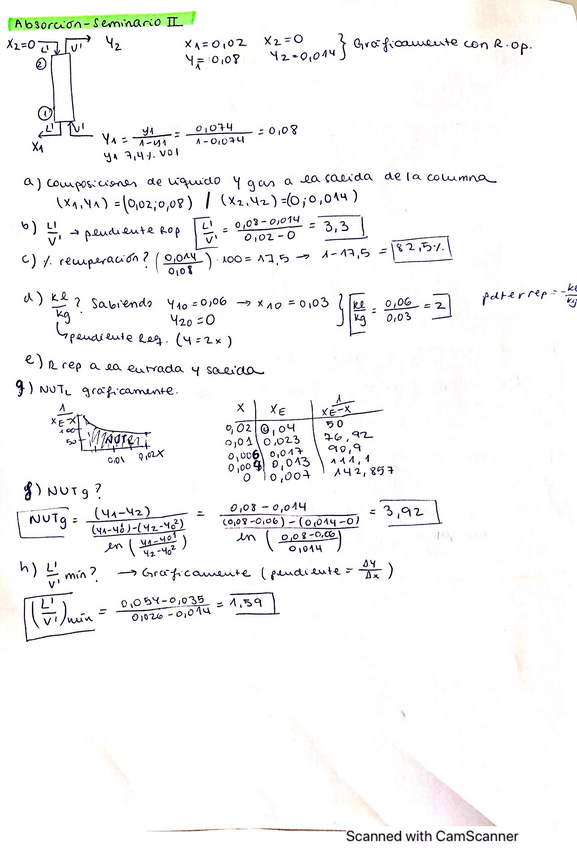 Absorción-Seminario II
X2=0 L' V' Y2 X1=0,02 X2=0 } Gráficamente con R.op.
Y1=0,08 Y2=0,014
②
①
L' V'
X1
Y1 = y1/(1-y1) = 0,074/(1-0,074) = 0,08
y1 7,4% vol
a) composiciones de líquido y gas a la salida de la columna
(X1,Y1)=(0,02;0,08) / (X2,Y2)=(0;0,014)
b) L'/V' → pendiente Rop L'/V' = (0,08-0,014)/(0,02-0) = 3,3
c) % recuperación? (0,014/0,08)·100=17,5 → 1-17,5 = 82,5%
d) kl/kg? Sabiendo Y10=0,06 → X10=0,03 } kl/kg = 0,06/0,03 = 2
Y20=0
pdterrep=-kl/kg
↳pendiente Req. (Y=2x)
e) R rep a la entrada y salida
g) NUTL gráficamente.
1/(XE-X)
100
50
NUTL
0,01 0,02 X
X | XE | 1/(XE-X)
0,02 | 0,04 | 50
0,01 | 0,023 | 76,92
0,006 | 0,017 | 90,9
0,004 | 0,013 | 111,1
0 | 0,007 | 142,857
f) NUTg?
NUTg = (Y1-Y2)/(((Y1-Y10)-(Y2-Y20))/ln((Y1-Y10)/(Y2-Y20))) = (0,08-0,014)/(((0,08-0,06)-(0,014-0))/ln((0,08-0,06)/0,014)) = 3,92
h) L'/V' min? → Gráficamente (pendiente = ΔY/Δx)
(L'/V')mín = (0,054-0,035)/(0,026-0,014) = 1,59
Scanned with CamScanner